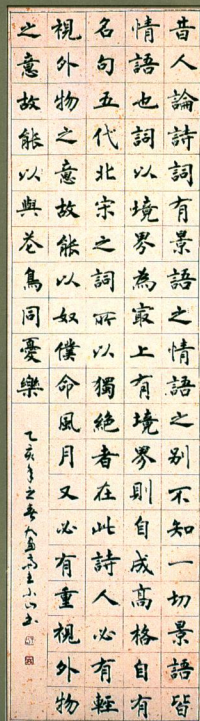 昔人論詩詞有景語之情語之別不知一切景語皆
情語也詞以境界為最上有境界則自成高格自有
名句五代北宋之詞所以獨絕者在此詩人必有輕
視外物之意故能以奴僕命風月又必有重視外物
之意故能以與花鳥同憂樂
乙亥年之春